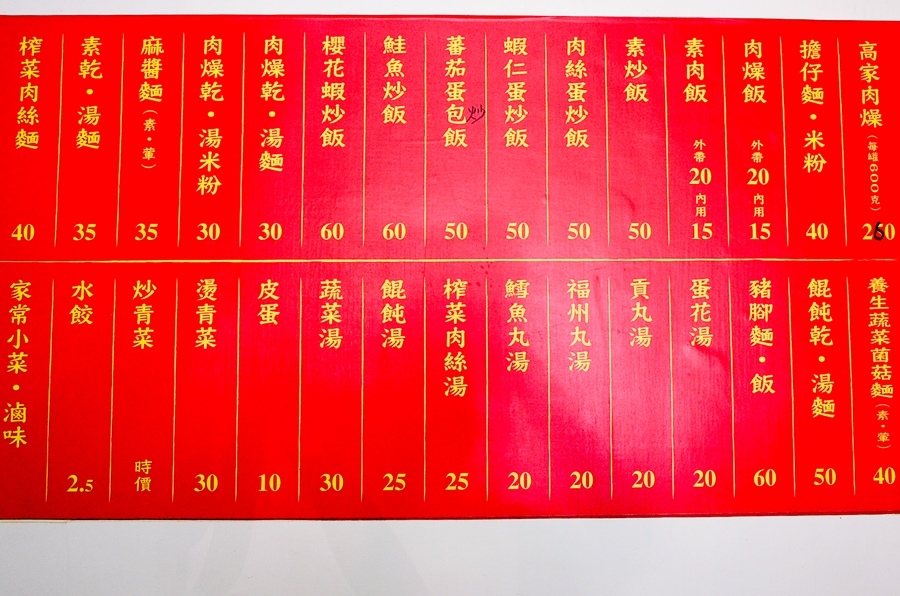 高家肉燥(每罐600克) 260
擔仔麵・米粉 40
肉燥飯 外帶20 內用15
素肉飯 外帶20 內用15
素炒飯 50
肉絲蛋炒飯 50
蝦仁蛋炒飯 50
蕃茄蛋包炒飯 50
鮭魚炒飯 60
櫻花蝦炒飯 60
肉燥乾・湯麵 30
肉燥乾・湯米粉 30
麻醬麵(素・葷) 35
素乾・湯麵 35
榨菜肉絲麵 40
養生蔬菜菌菇麵(素・葷) 40
餛飩乾・湯麵 50
豬腳麵・飯 60
蛋花湯 20
貢丸湯 20
福州丸湯 20
鱈魚丸湯 20
榨菜肉絲湯 25
餛飩湯 25
蔬菜湯 30
皮蛋 10
燙青菜 30
炒青菜 時價
水餃 2.5
家常小菜・滷味